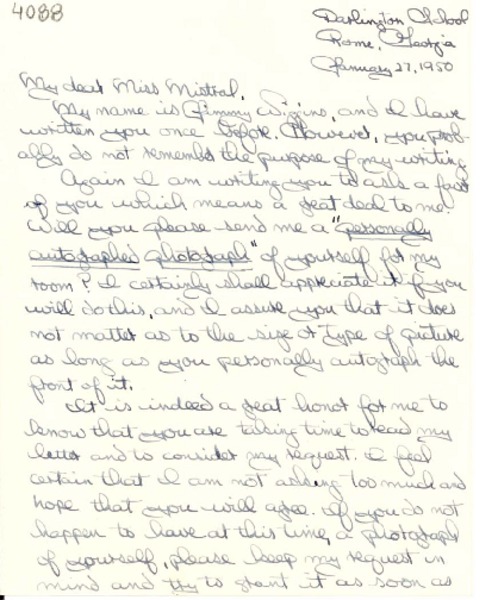 4088
Darlington School
Rome, Georgia
January 27, 1950
My dear Miss Mistral,
My name is Jimmy Wiggins, and I have
written you once before. However, you prob-
ably do not remember the purpose of my writing.
Again I am writing you to ask a favor
of you which means a great deal to me.
Will you please send me a "personally
autographed photograph" of yourself for my
room? I certainly shall appreciate it if you
will do this, and I assure you that it does
not matter as to the size or type of picture
as long as you personally autograph the
front of it.
It is indeed a great honor for me to
know that you are taking time to read my
letter and to consider my request. I feel
certain that I am not asking too much and
hope that you will agree. If you do not
happen to have at this time, a photograph
of yourself, please keep my request in
mind and try to grant it as soon as